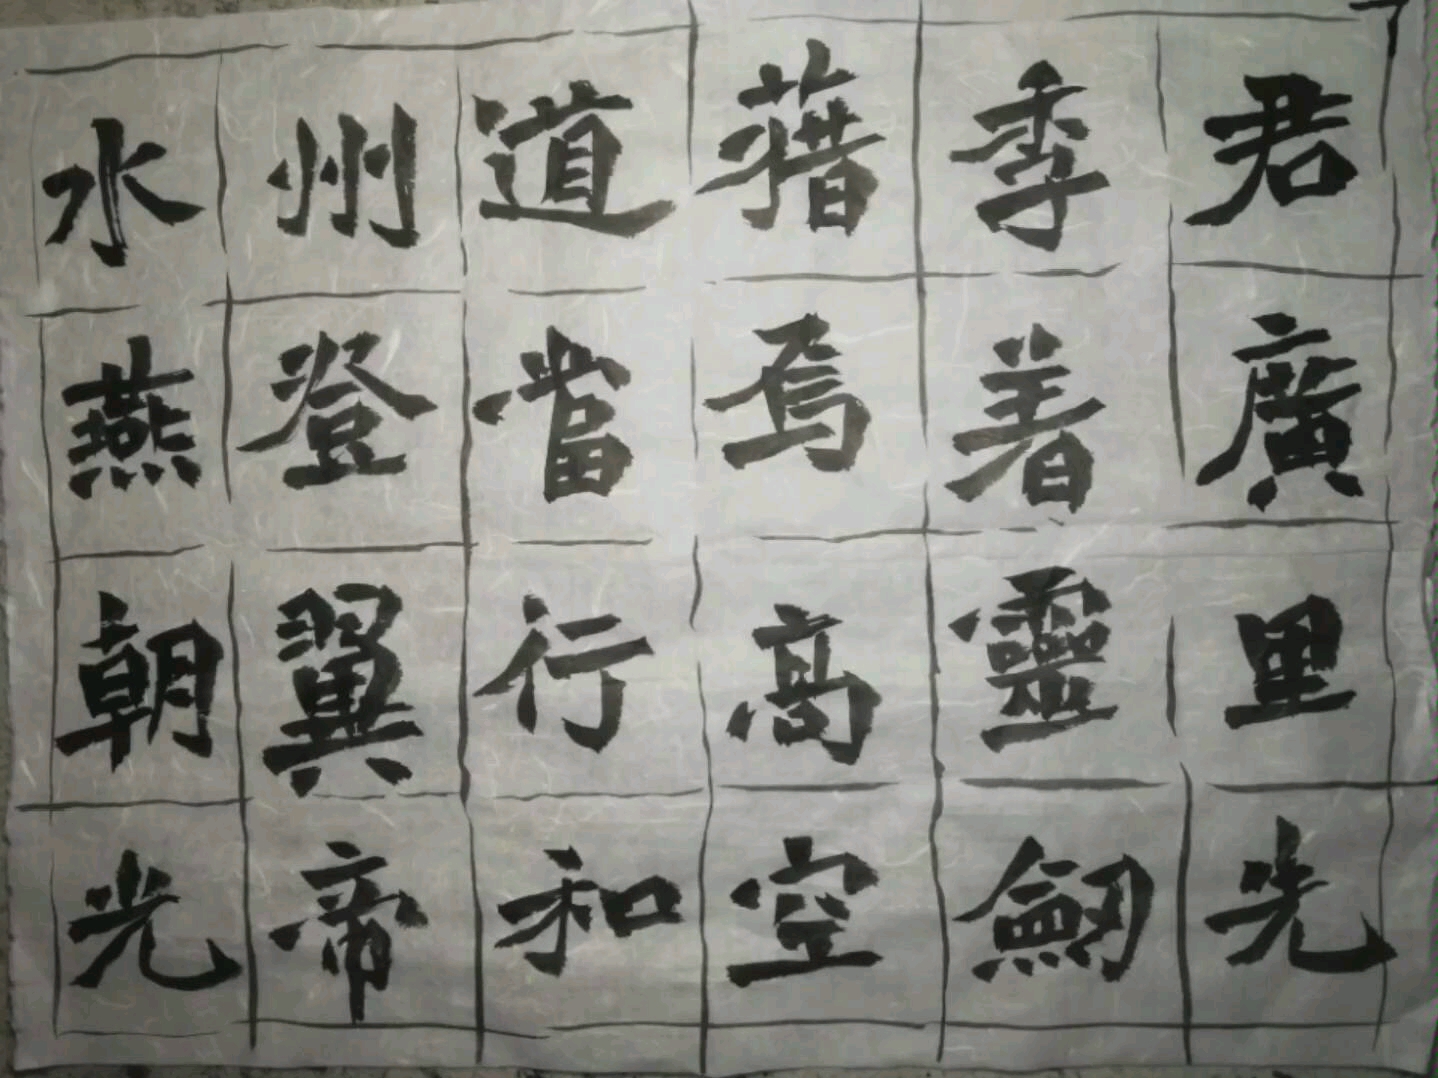 君廣里先
季着靈劒
藉焉高空
道當行和
州登翼帝
水燕朝光